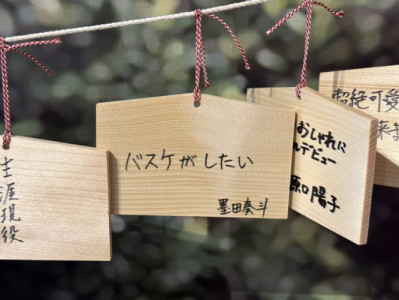 生涯現役
バスケがしたい
墨田奏斗
おしゃれに
ルデビュー
原口陽子
超絶可愛
来